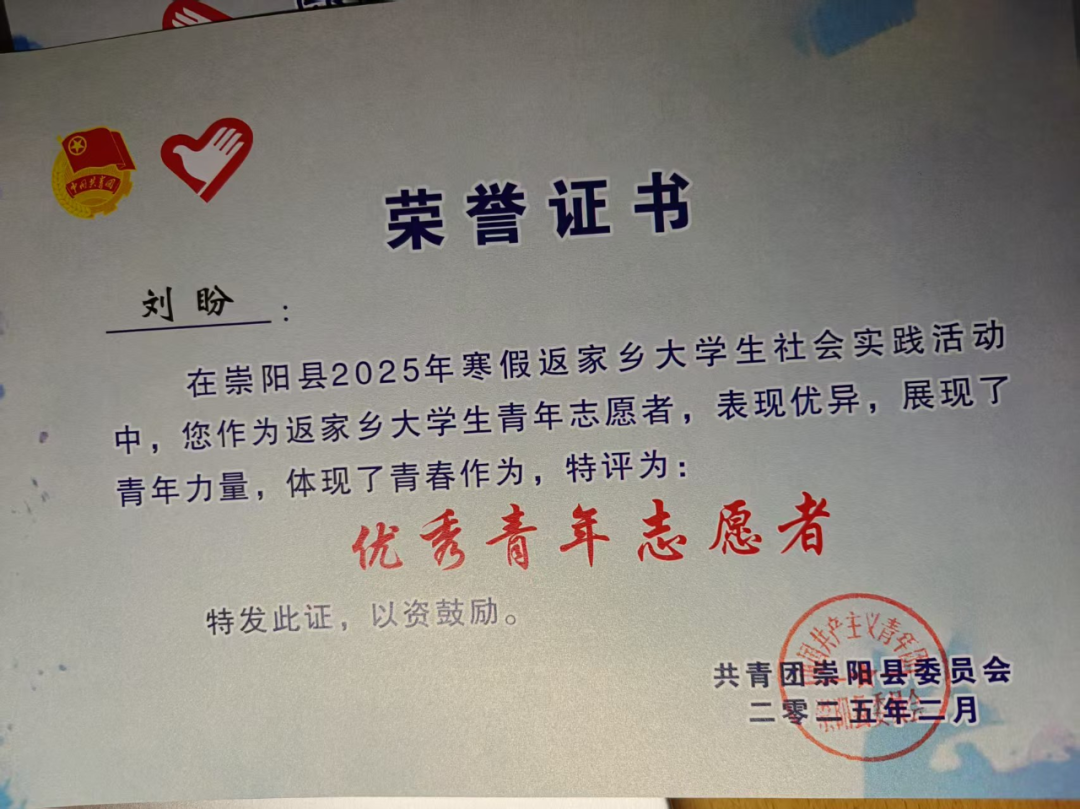 中国共青团
荣誉证书
刘盼：
在崇阳县2025年寒假返家乡大学生社会实践活动
中，您作为返家乡大学生青年志愿者，表现优异，展现了
青年力量，体现了青春作为，特评为：
优秀青年志愿者
特发此证，以资鼓励。
共青团崇阳县委员会
二零二五年二月
国共产主义青年团
崇阳县委员会